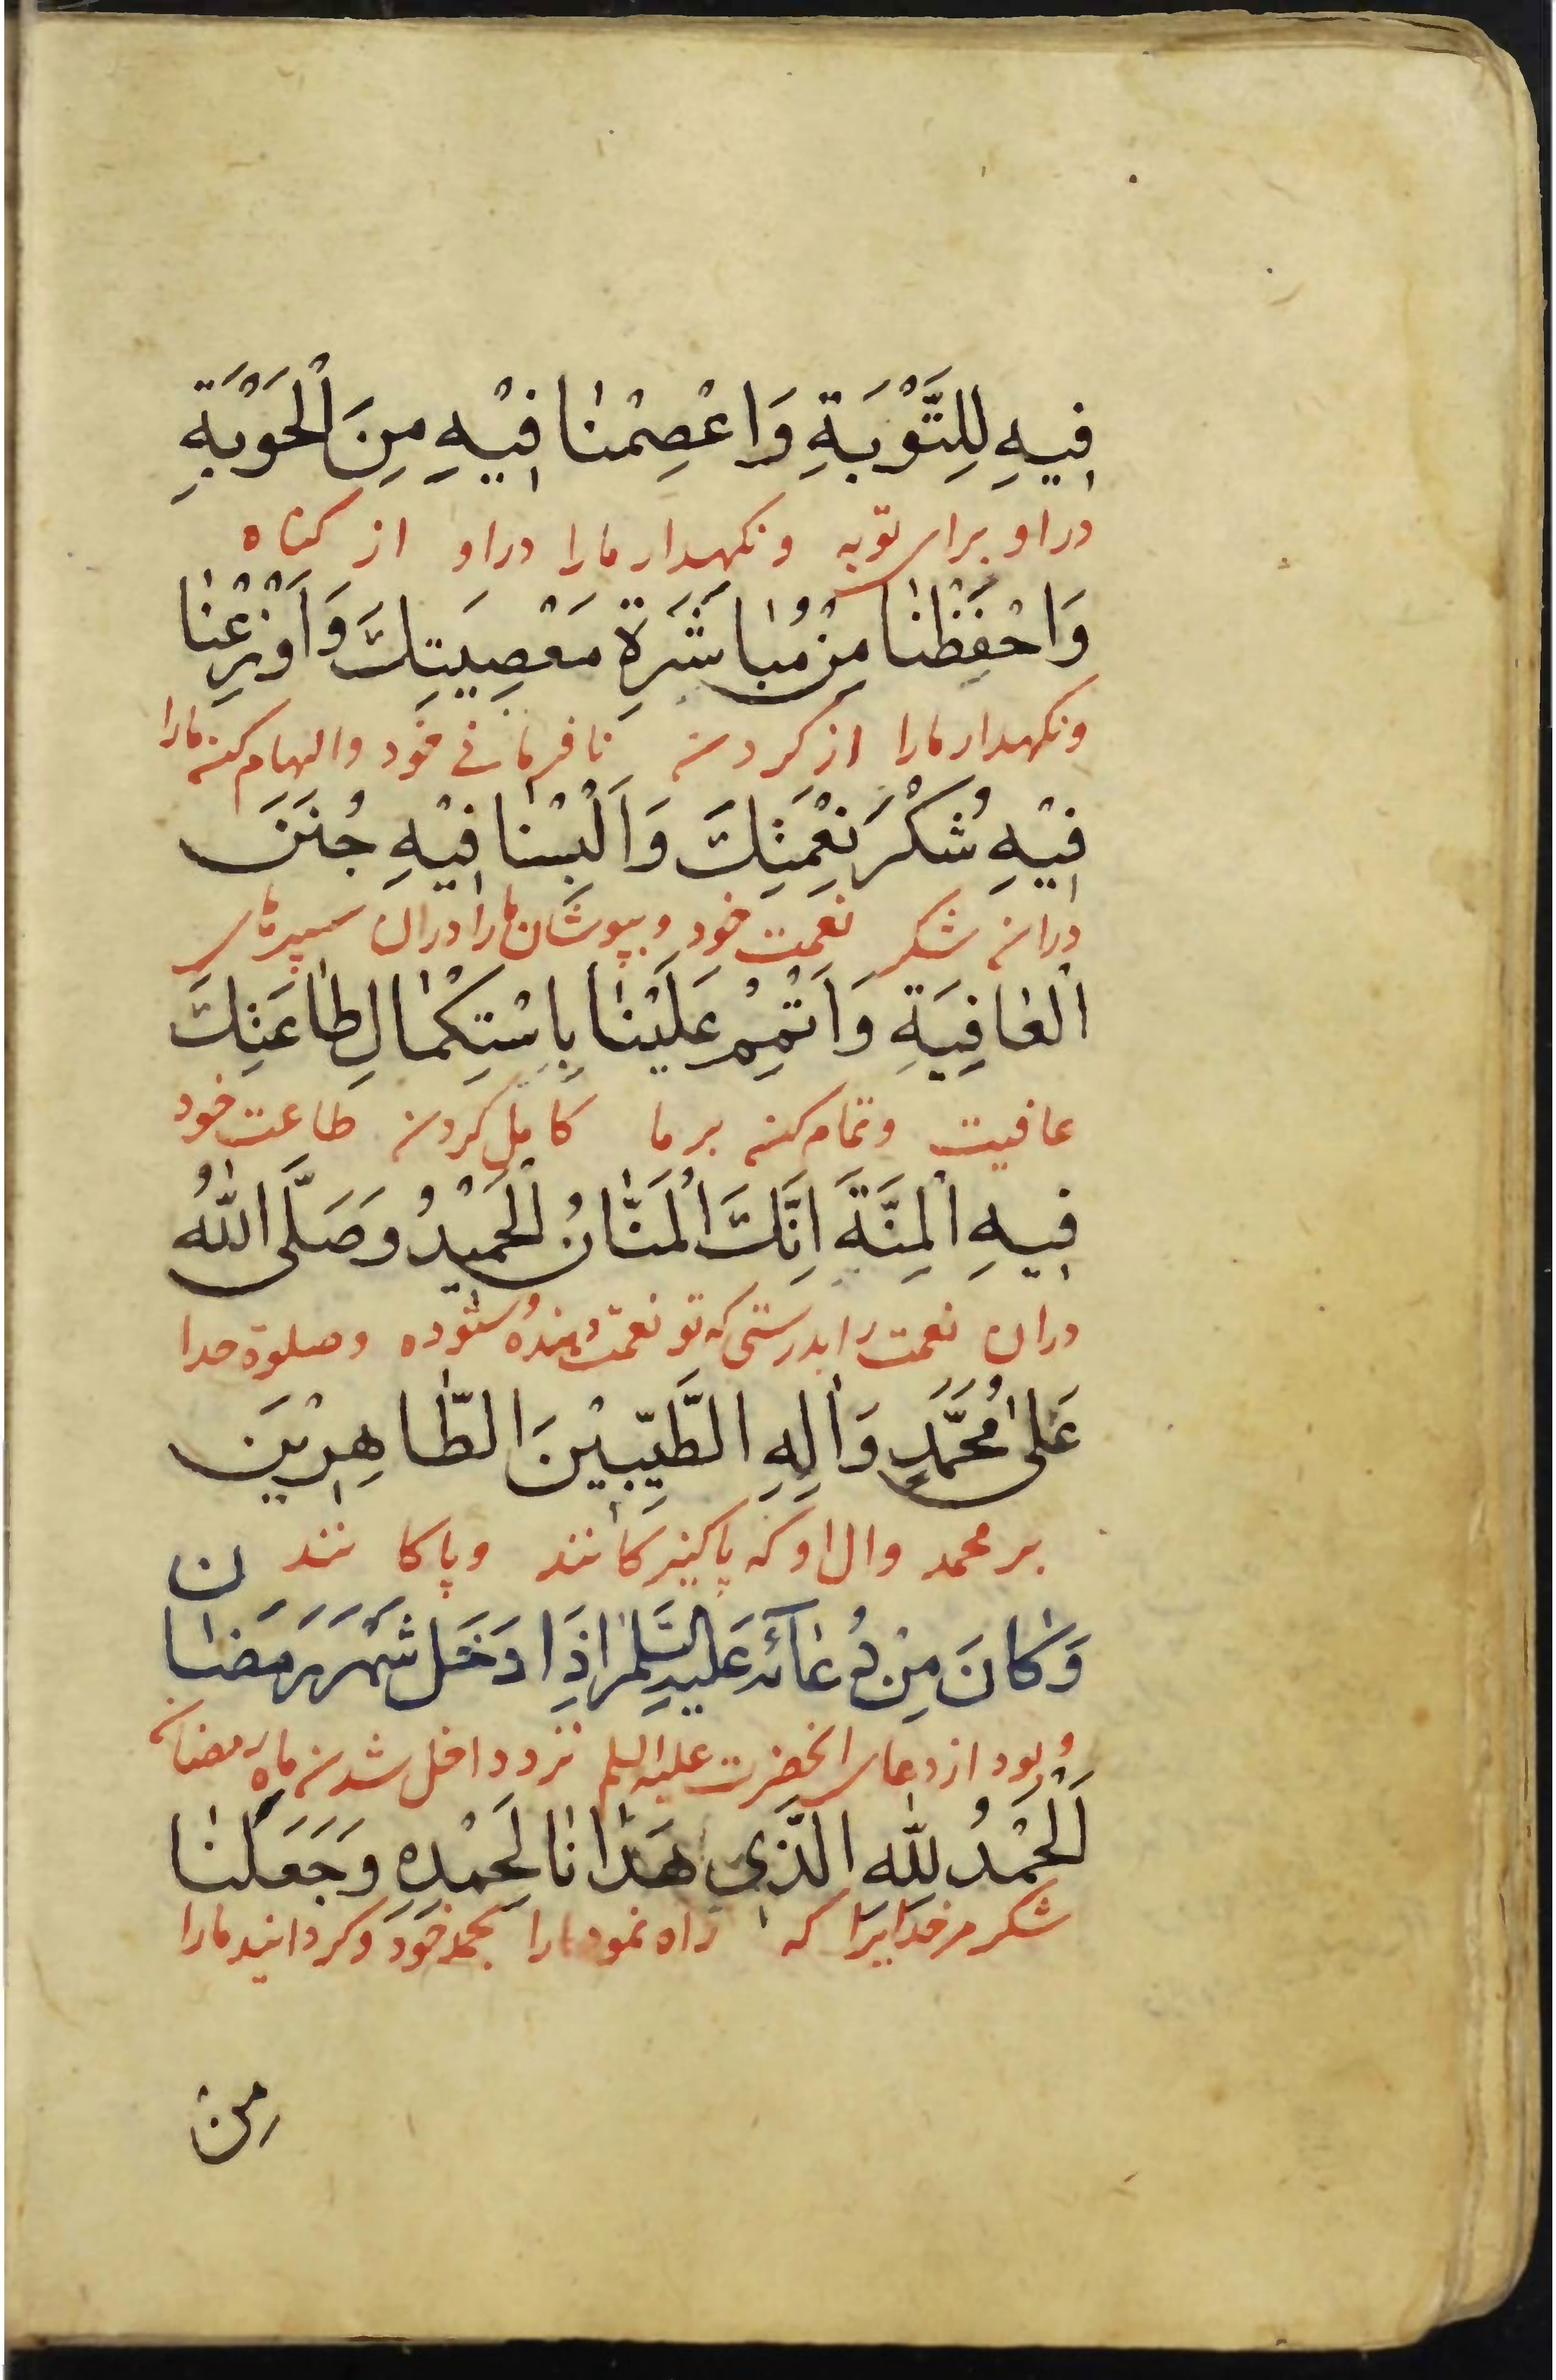 فِيهِ لِلتَّوْبَةِ وَاعْصِمْنٰا فِيْهِ مِنَ الْحَوْبَةِ
در او برای توبه و نکهدار مارا در او از کناه
وَاحْفَظْنٰا مِنْ مُبٰاشَرَةِ مَعْصِيَتِكَ وَاَوْزِعْنٰا
و نکهدار مارا از کردن نافرمانی خود و الهام کن مارا
فِيْهِ شُكْرَ نِعْمَتِكَ وَاَلْبِسْنٰا فِيْهِ جُنَنَ
در ان شکر نعمت خود و بپوشان مارا در ان سپرهای
الْعٰافِيَةِ وَاَتْمِمْ عَلَيْنٰا بِاسْتِكْمٰالِ طٰاعَتِكَ
عافیت و تمام کن بر ما کامل کردن طاعت خود
فِيهِ الْمِنَّةَ اِنَّكَ الْمَنّٰانُ الْحَمِيْدُ وَصَلَّى اللّٰهُ
در ان نعمت را بدرستی که تو نعمت دهندهٔ ستوده و صلوة خدا
عَلىٰ مُحَمَّدٍ وَاٰلِهِ الطَّيِّبِيْنَ الطّٰاهِرِيْنَ
بر محمد و ال او که پاکیزکانند و پاکانند
وَكٰانَ مِنْ دُعٰآئِهِ عَلَيْهِ السَّلٰمُ اِذَا دَخَلَ شَهْرَ رَمَضٰان
و بود از دعای انحضرت علیه السلم نزد داخل شدن ماه رمضان
اَلْحَمْدُ لِلّٰهِ الَّذِي هَدٰانٰا لِحَمْدِهِ وَجَعَلَنٰا
شکر مر خدایرا که راه نمود مارا بحمد خود و کردانید مارا
مِنْ